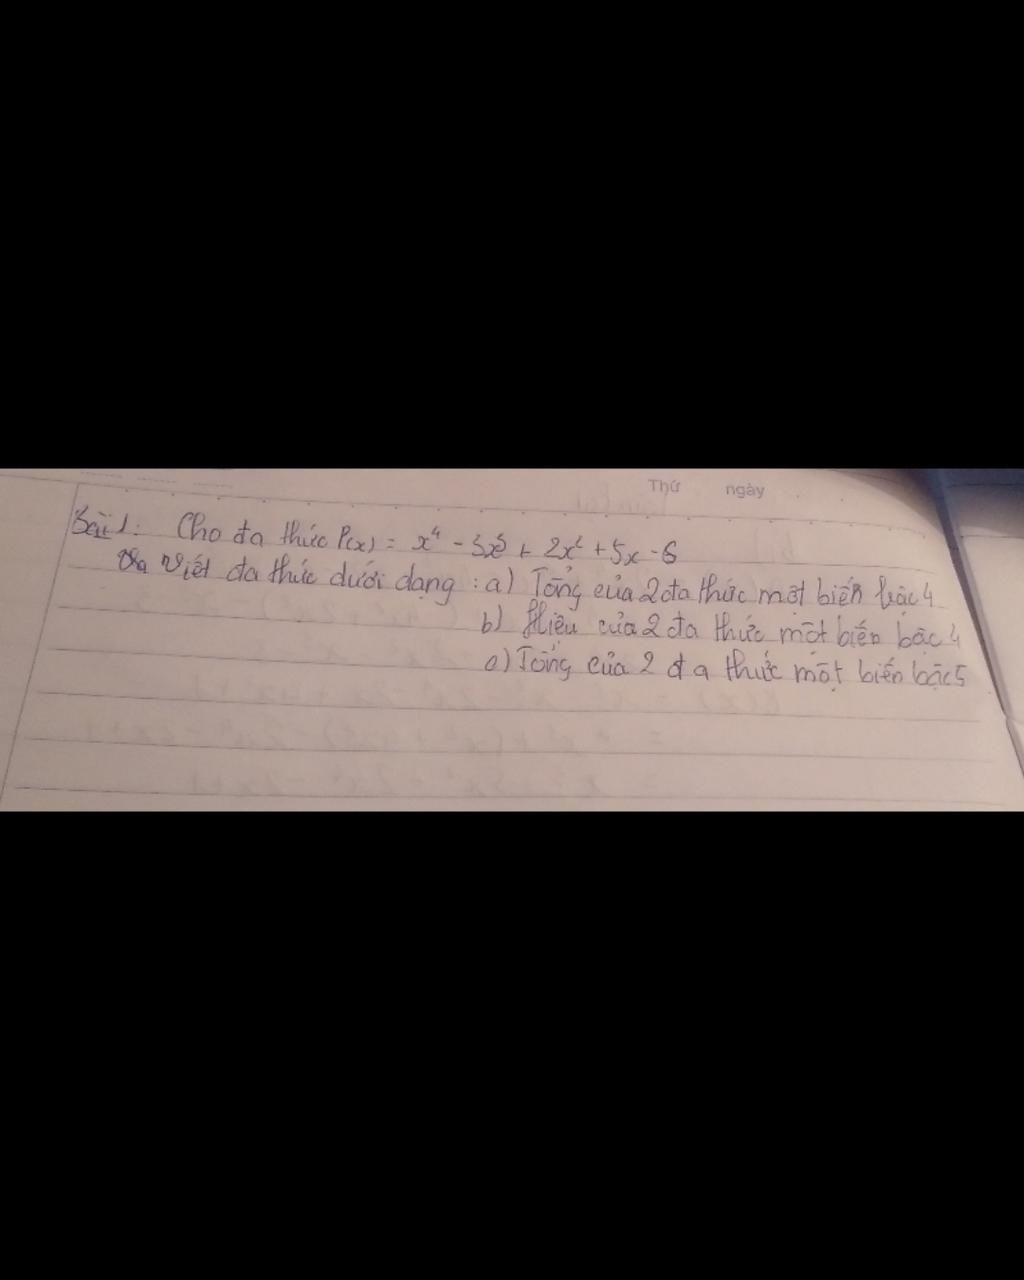 Thứ ngày
Bài 1: Cho đa thức P(x) = x⁴ - 3x³ + 2x² + 5x - 6
viết đa thức dưới dạng : a) Tổng của 2 đa thức một biến bậc 4
b) Hiệu của 2 đa thức một biến bậc 4
c) Tổng của 2 đa thức một biến bậc 5